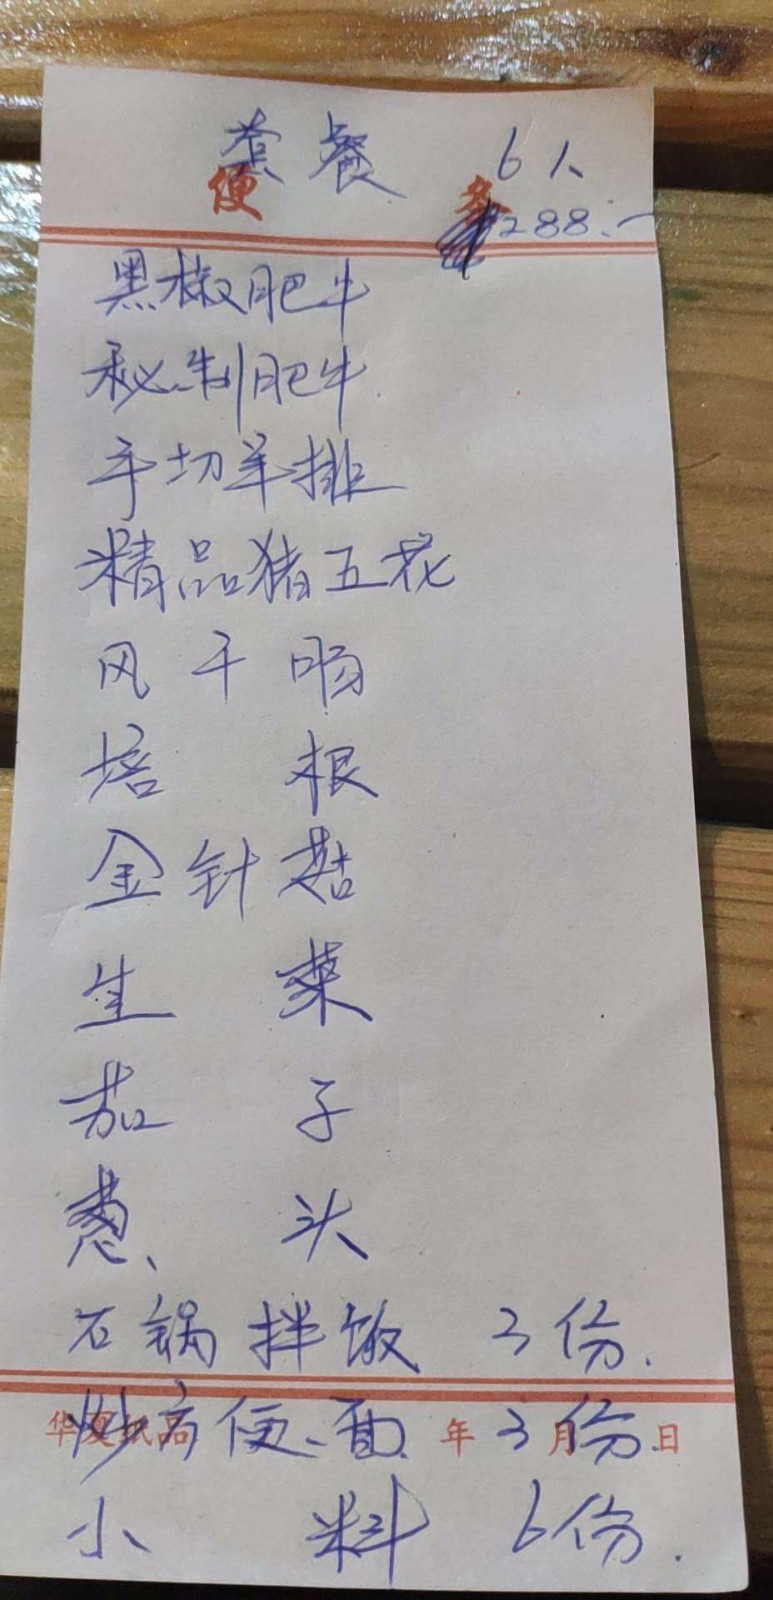 套餐 6人
便 条
288.一
黑椒肥牛
秘制肥牛
手切羊排
精品猪五花
风干肠
培根
金针菇
生菜
茄子
葱头
石锅拌饭 3份.
炒方便面 3份.
华夏纸品 年 月 日
小料 6份.